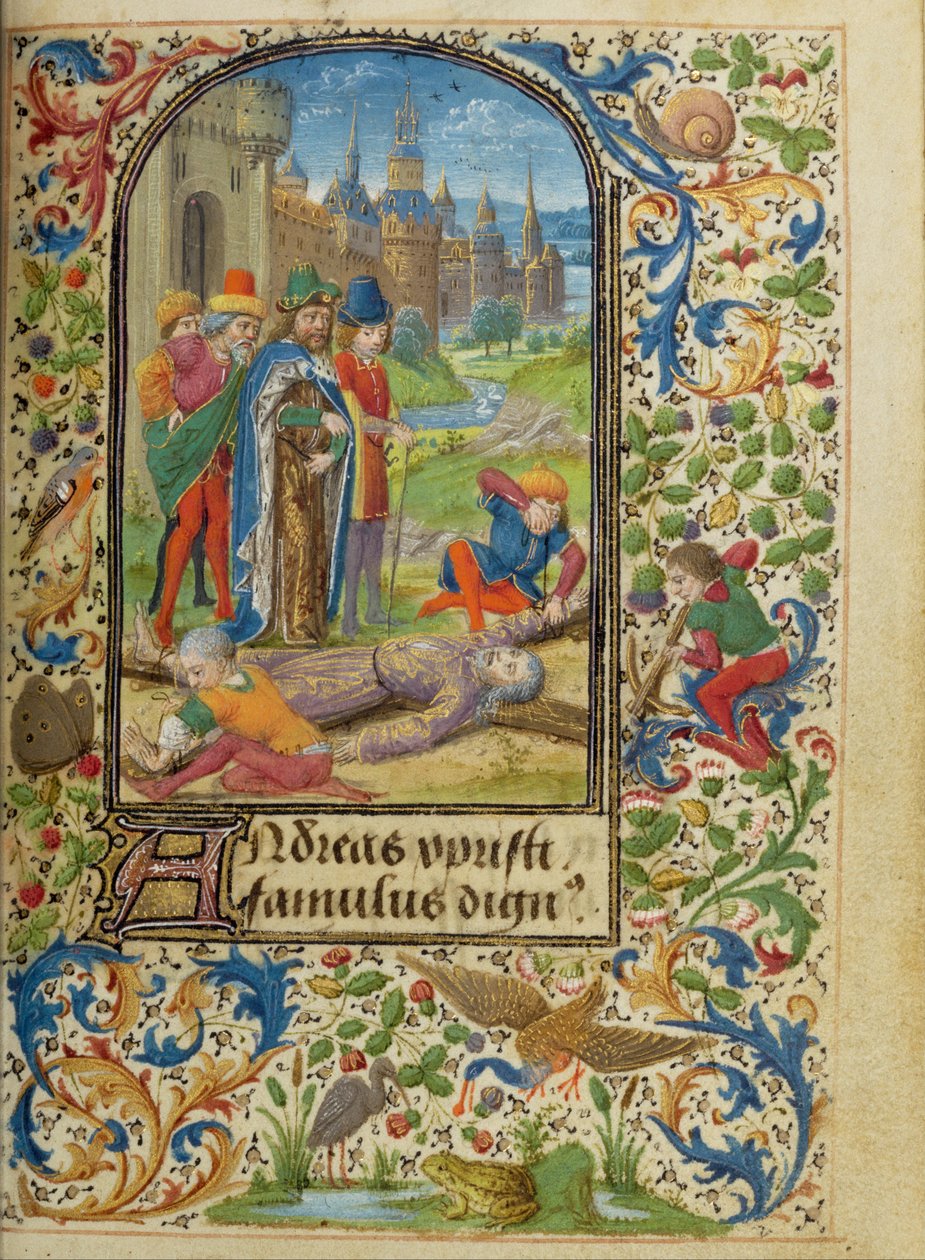 ANdreas xpristi
famulus dignꝰ.